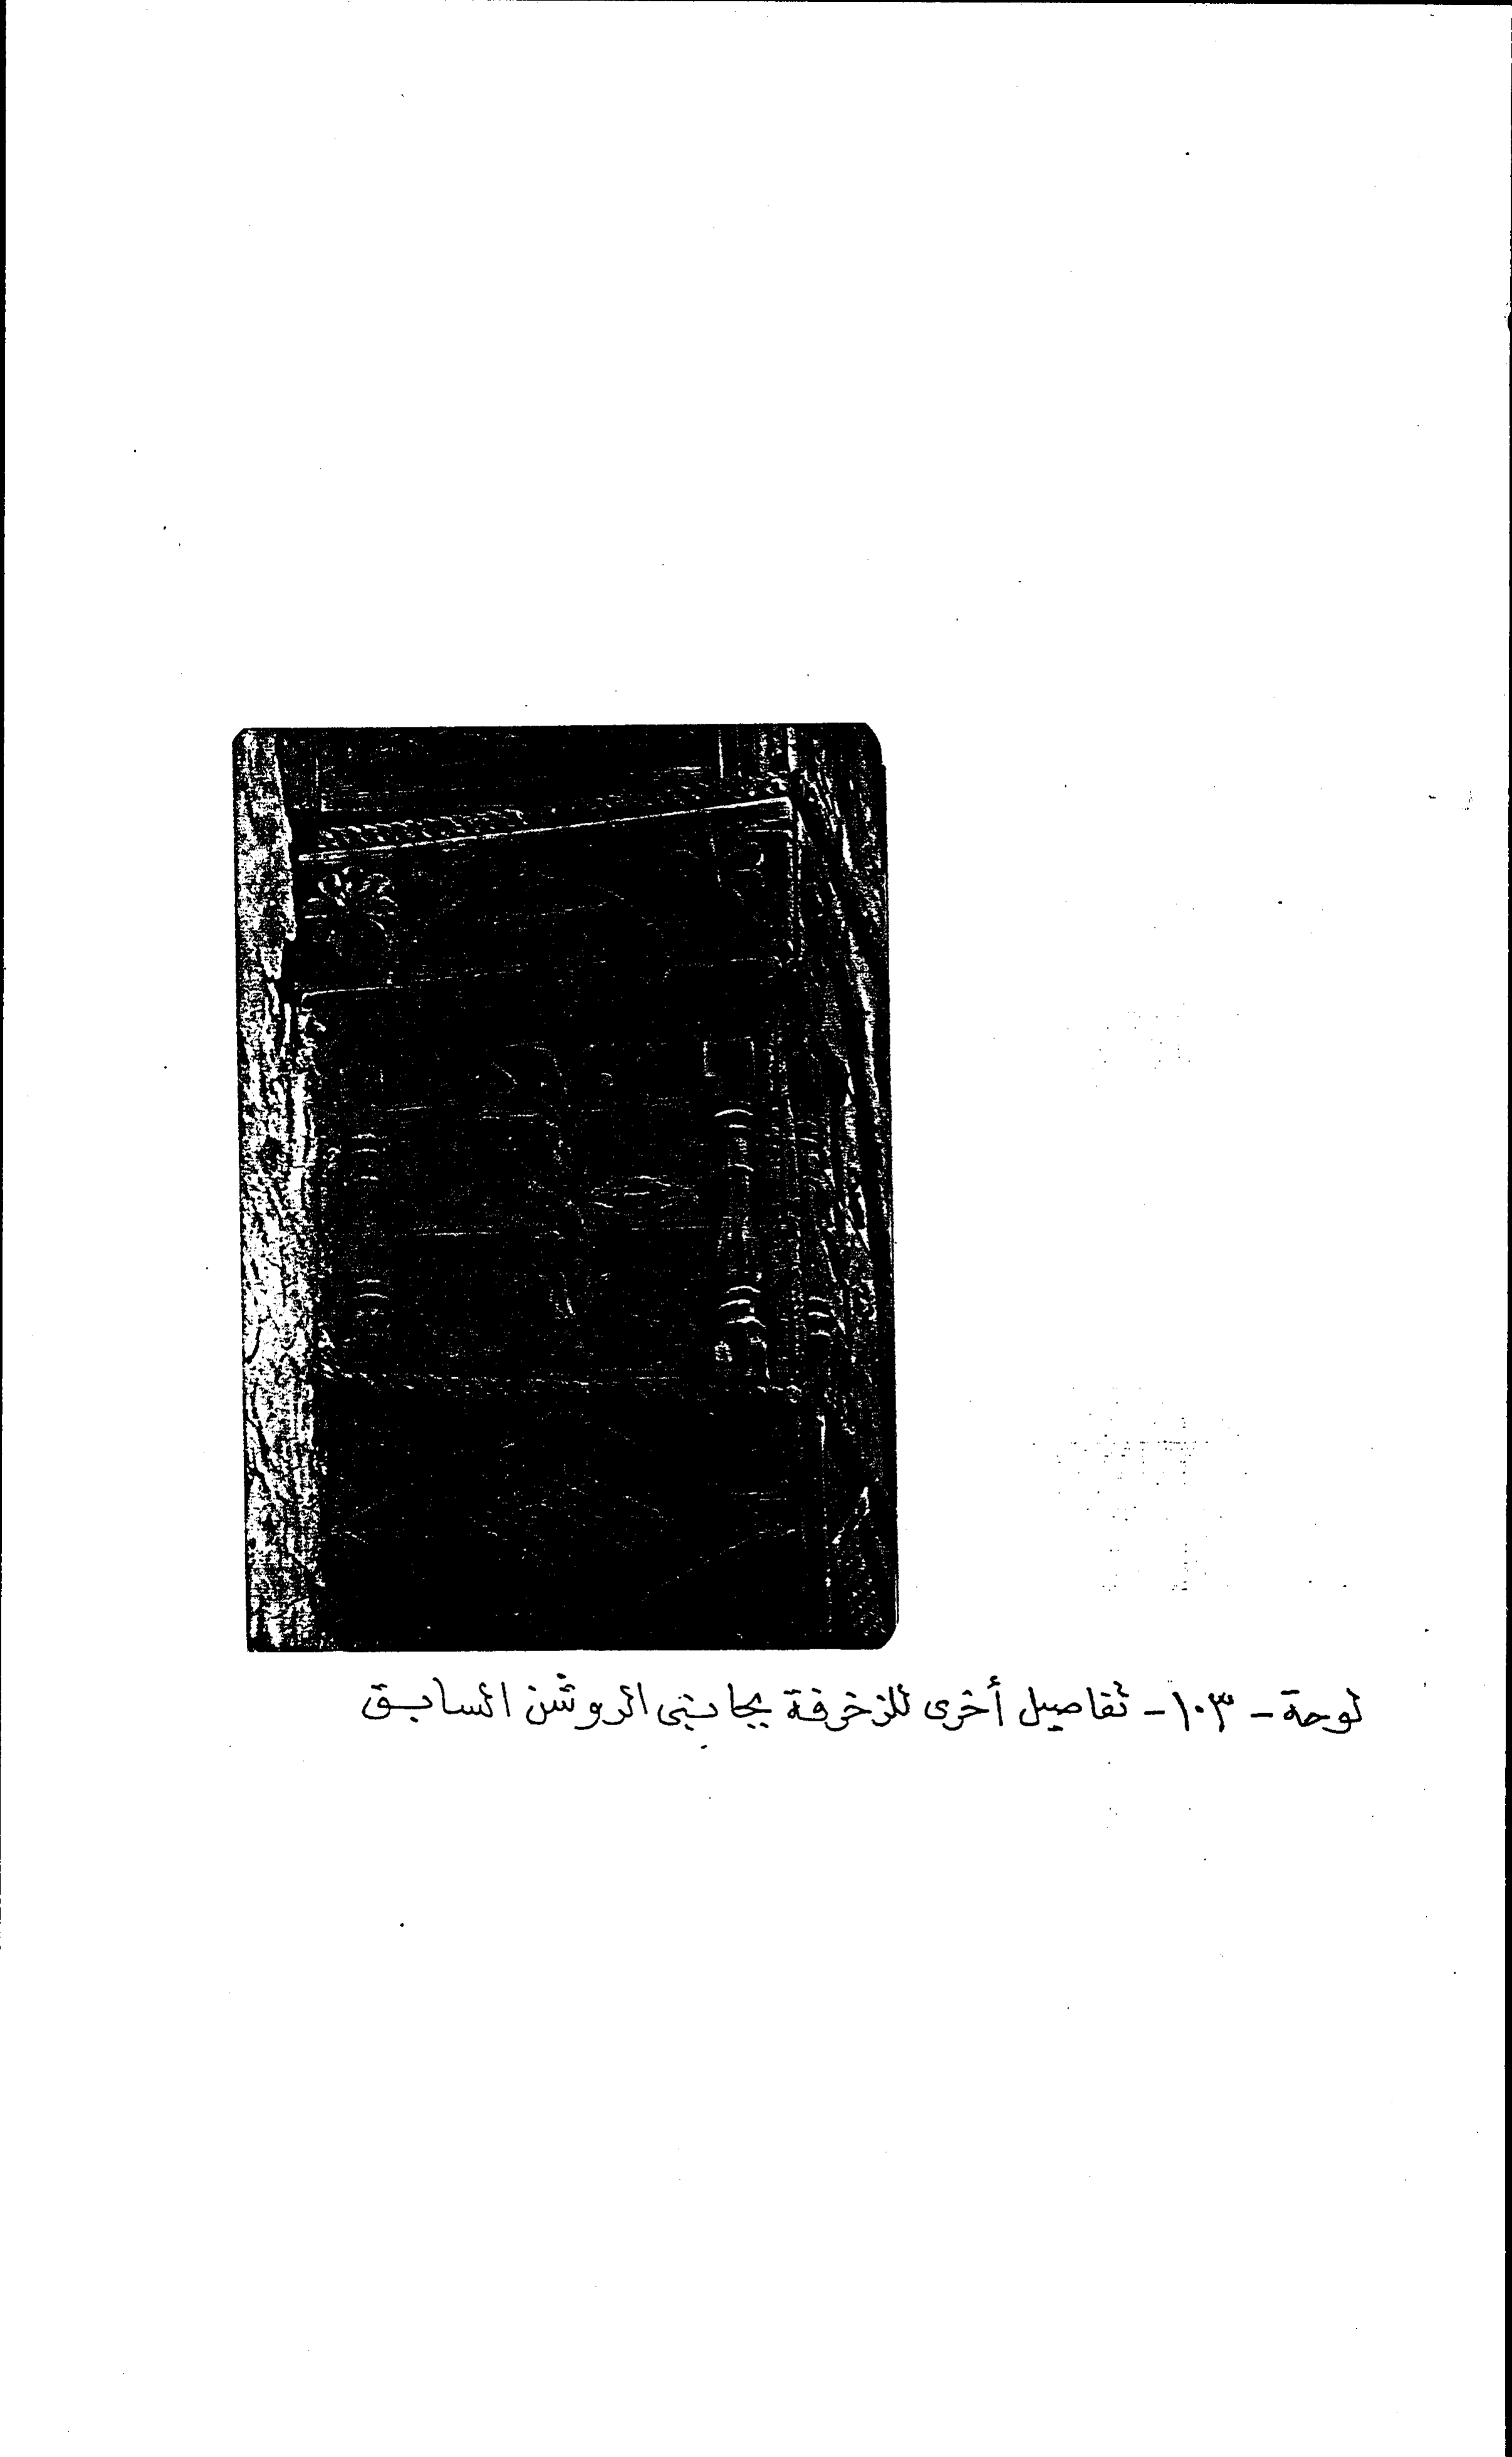 لوحة - ١٠٣ - تفاصيل أخرى للزخرفة بجانبى الروشن السابق